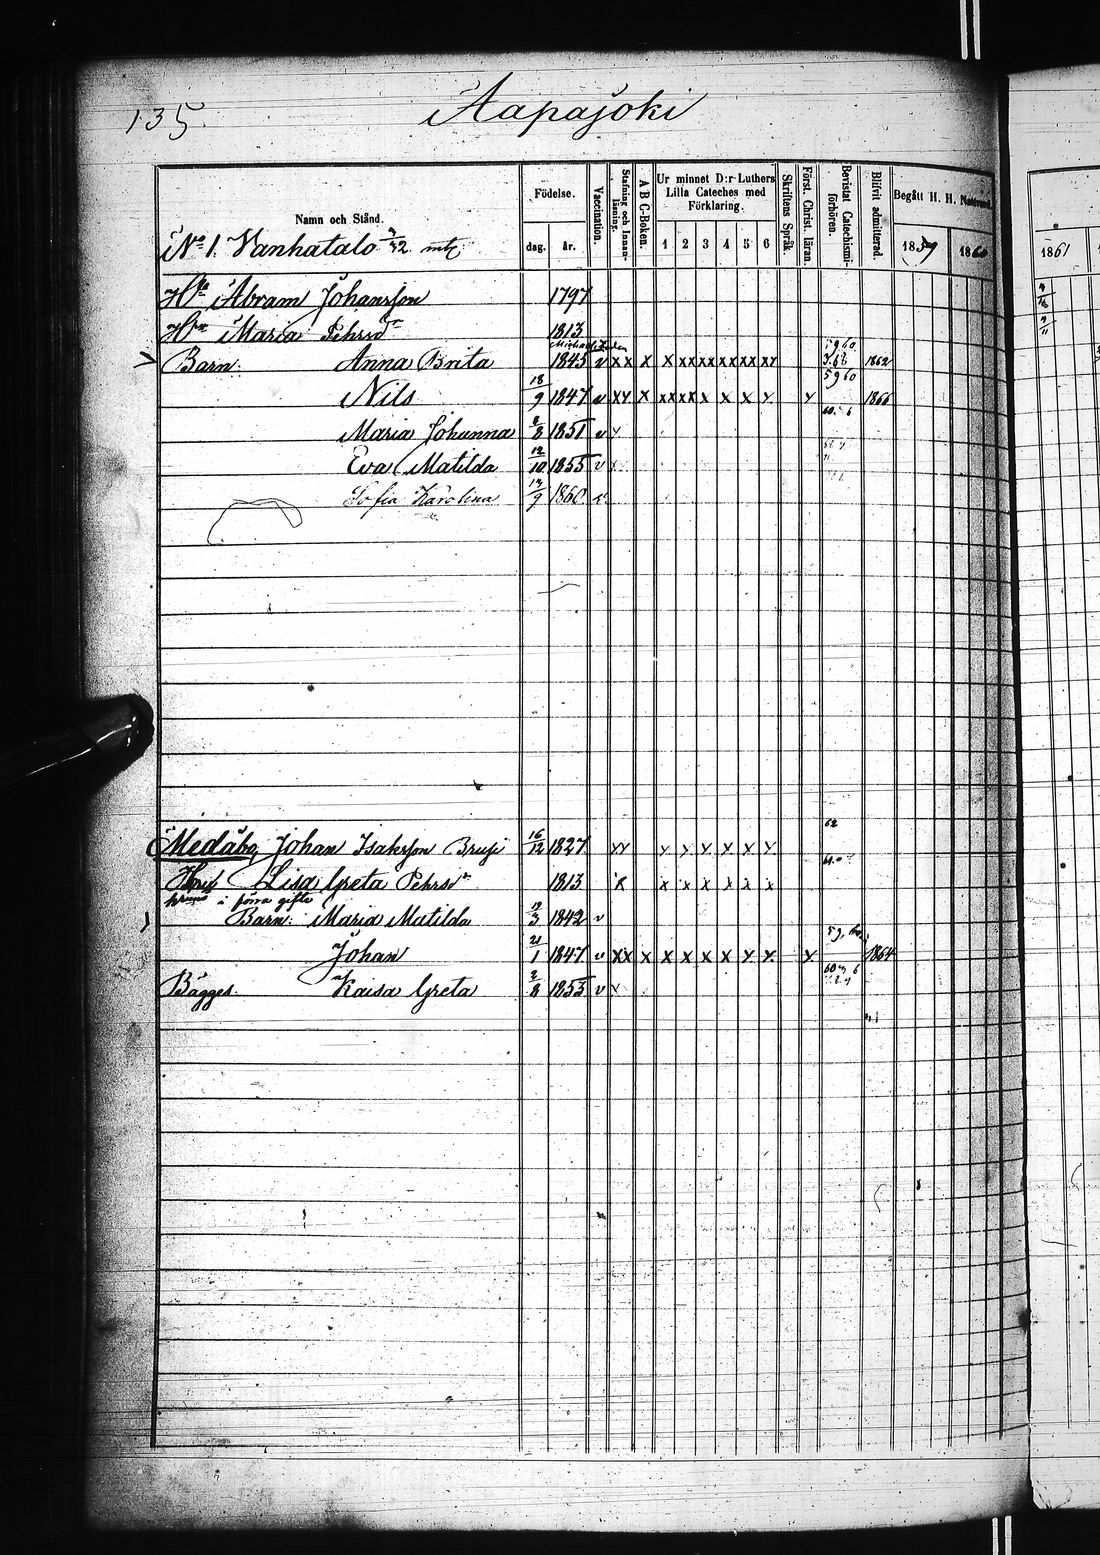 135.
Aapajoki
Namn och Stånd.
Födelse.
dag. år.
Vaccination.
Stafning och Innan-läsning.
A B C-Boken.
Ur minnet D:r Luthers Lilla Cateches med Förklaring.
1 2 3 4 5 6
Skriftens Språk.
Först. Christ. läran.
Bevistat Catechismi-förhören.
Blifvit admitterad.
Begått H. H. Nattvard.
1859 1860
1861
No 1. Vanhatalo 3/32 mtl
Abram Johansson 1797
Maria Pehrsdr 1813
Barn. Anna Brita 1845 v xx x x xx xx xx xx xx 1862
Nils 18/9 1847 v xx x xx xx x x x x x 1866
Maria Johanna 1851 v
Eva Matilda 12/10 1855 v
Sofia Karolina 13/9 1860 v
62
Medåbo Johan Isaksson 16/12 1827 xx x x x x x x
Lisa Greta Pehrsdr 1813 x x x x x x x
förra gifte
Barn. Maria Matilda 1842 v
Johan 21/1 1847 v xx x x x x x x x x 1864
Bägges. Kaisa Greta 2/8 1853 v x